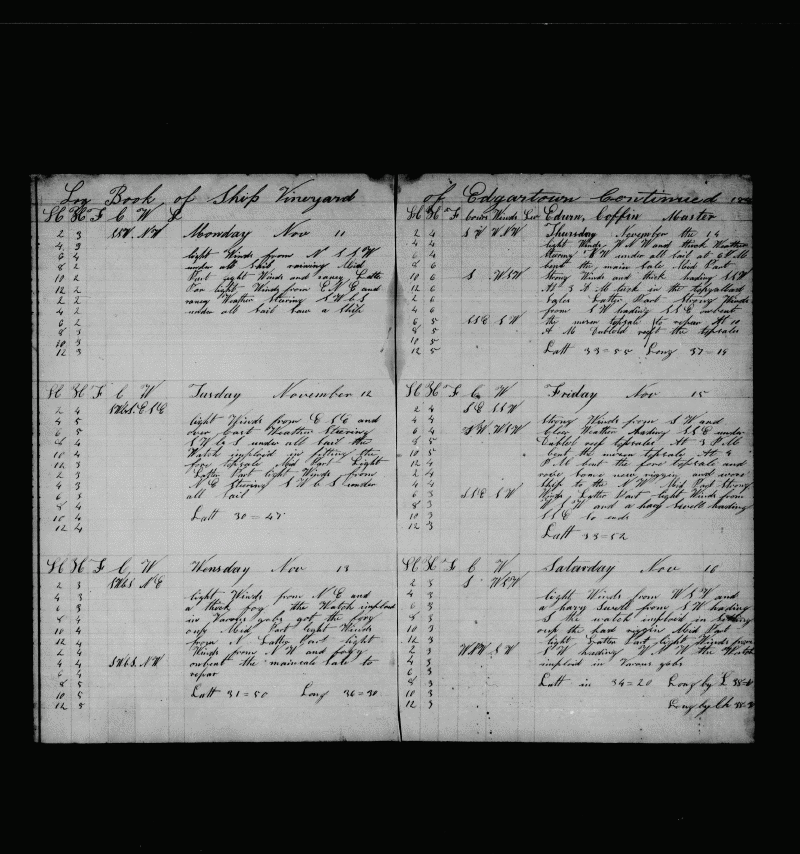 Log Book of Ship Vineyard
H K F C W
2 3 SSW NW Monday Nov 11
4 3
6 4 light Winds from N S S W
8 2 under all Sail raining Mid
10 2 Part light Winds and rainey Latter
12 2 Par light Winds from E N E and
2 2 rainey Weather Steering S W b S
4 2 under all Sail Saw a Ship
6 2
8 3
10 3
12 3
H K F C W Tusday November 12
2 4 SWbS E S E
4 5 light Winds from E S E and
6 5 over Cast Weather Steering
8 4 S W b S under all Sail the
10 4 Watch imploid in fitting the
12 3 fore topsale Mid Part Light
2 4 Latter Part light Winds from
4 3 N E Steering S W b S under
6 3 all Sail
8 4
10 4 Latt 30=45
12 4
H K F C W Wensday Nov 13
2 3 SWbS N E
4 3 light Winds from N E and
6 3 a thick fog the Watch imploid
8 3 in Varous gobs got the
10 4 oup Mid Part light Winds
12 4 from N Latter Part light
2 4 Winds from N W and foggy
4 4 SWbS NW onbent the mainsale Sale to
6 4 repar
8 5
10 5 Latt 31=50 Long 36=30
12 5
of Edgartown Continued
H K F Cours Winds Lw Edwn. Coffin Master
2 4 S W W N W Thursday November the 14
4 4 light Winds W N W and thick Weather
6 4 Stearing S W under all Sail at 6 P M
8 6 bent the main Sale Mid Part
10 6 S W S W Strong Winds and thick heading S S W
12 6 At 3 A M tuck in the topgallant
2 6 Sales Latter Part Strong Winds
4 6 from S W heading S S E onbent
6 5 S S E S W the mizen topsale to repar At 10
8 5 A M Dubled reeft the topsales
10 5
12 5 Latt 33=55 Long 37=14
H K F C W Friday Nov 15
2 4 S E S S W
4 4 Strong Winds from S W and
6 4 S W W S W Clear Weather heading S S E under
8 5 Dubled reef topsales At 3 P M
10 5 bent the mizen topsale At 4
12 4 P M bent the fore topsale and
2 4 rove Some new riggin and wore
4 4 Ship to the N W Mid Part Strong
6 3 S S E S W Winds Latter Part light Winds from
8 3 W S W and a havy Swell heading
10 3 S S E So ends
12 3
Latt 33=52
H K F C W Satarday Nov 16
2 3 S W S W
4 3 light Winds from W S W and
6 3 a havy Swell from S W heading
8 3 S the watch imploid in
10 3 oup the hed riggin Mid Part
12 3 light Latter Part light Winds from
2 3 W N W S W S W heading W N W the Watch
4 3 imploid in Varous gobs
6 3
8 3 Latt in 34=20 Long by L
10 3
12 3 Long by Ch